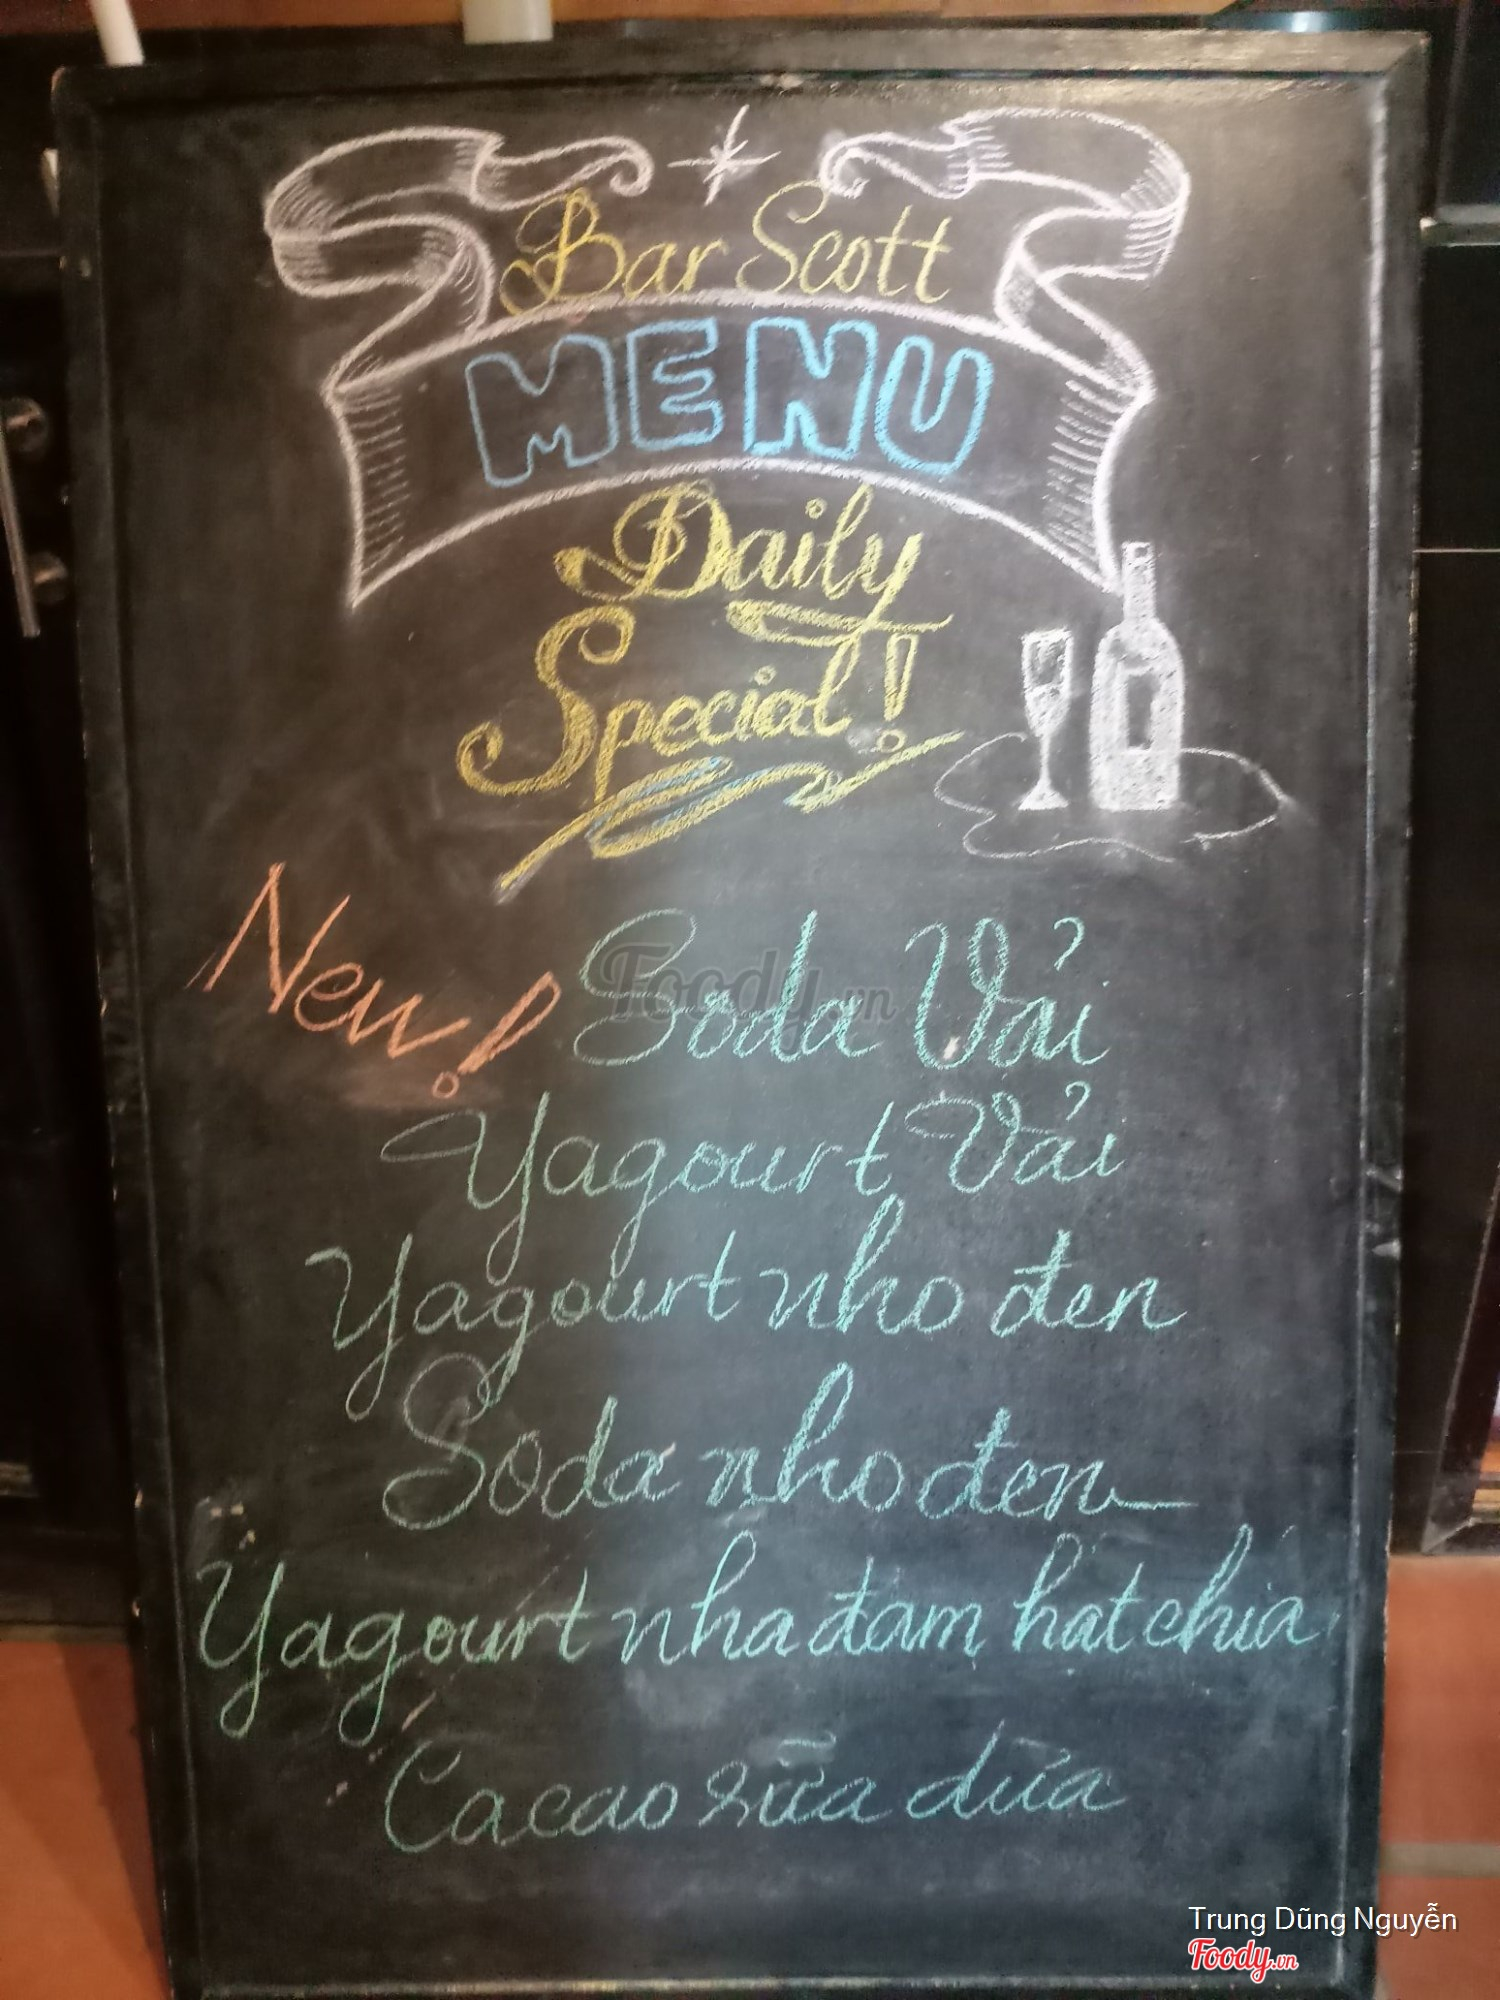 Bar Scott
MENU
Daily
Special!
New! Soda Vải
Yagourt Vải
Yagourt nho đen
Soda nho đen
Yagourt nha đam hạt chia
Cacao sữa dừa
Foody.vn
Trung Dũng Nguyễn
Foody.vn